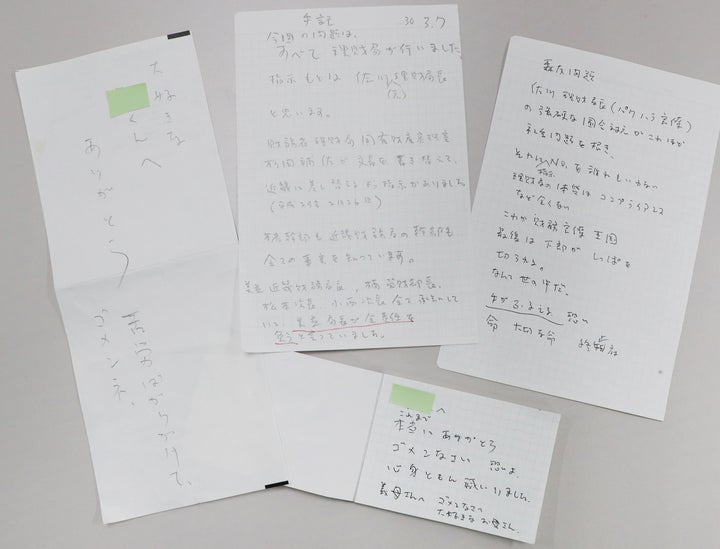 大好きな
くんへ
ありがとう
苦労ばかりかけて、
ゴメンネ、
手記 30 3.7
今回の問題は、
すべて 理財局が行いました、
指示もとは 佐川理財局長
(元)
と思います。
財務省理財局 国有財産審理室
杉田補佐が文書を書き替えて、
近畿に差し替えろと指示がありました
本省幹部も近畿財務局の幹部も
全ての事実を知っています。
美並近畿財務局長、楠管財部長、
松本次長、小西次長全て承知して
いて、美並局長が全責任を
負うと言っていました。
森友問題
佐川 理財局長(パワハラ官僚)
の強硬な国会対応がこれほど
社会問題を招き、
それにNOを誰れもいわない
指示
理財局の体質はコンプライアンス
など全くない
これが財務官僚王国
最後は下部がしっぽを
切られる。
なんて世の中だ、
手がふるえる、恐い
命 大切な命 終止府
へ
これまで
本当にありがとう
ゴメンなさい 恐いよ、
心身ともに滅いりました、
義母さんへ ゴメンなさい
大好きなお母さん、